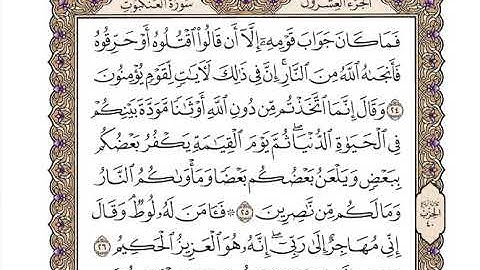 الجزء العشرون
سورة العنكبوت
فَمَا كَانَ جَوَابَ قَوْمِهِۦٓ إِلَّآ أَن قَالُوا۟ ٱقْتُلُوهُ أَوْ حَرِّقُوهُ
فَأَنجَىٰهُ ٱللَّهُ مِنَ ٱلنَّارِ ۚ إِنَّ فِى ذَٰلِكَ لَـَٔايَٰتٍ لِّقَوْمٍ يُؤْمِنُونَ
٢٤ وَقَالَ إِنَّمَا ٱتَّخَذْتُم مِّن دُونِ ٱللَّهِ أَوْثَٰنًا مَّوَدَّةَ بَيْنِكُمْ
فِى ٱلْحَيَوٰةِ ٱلدُّنْيَا ۖ ثُمَّ يَوْمَ ٱلْقِيَٰمَةِ يَكْفُرُ بَعْضُكُم
بِبَعْضٍ وَيَلْعَنُ بَعْضُكُم بَعْضًا وَمَأْوَىٰكُمُ ٱلنَّارُ
وَمَا لَكُم مِّن نَّٰصِرِينَ ٢٥ ۞ فَـَٔامَنَ لَهُۥ لُوطٌ ۘ وَقَالَ
إِنِّى مُهَاجِرٌ إِلَىٰ رَبِّىٓ ۖ إِنَّهُۥ هُوَ ٱلْعَزِيزُ ٱلْحَكِيمُ ٢٦
الحزب
٤٠